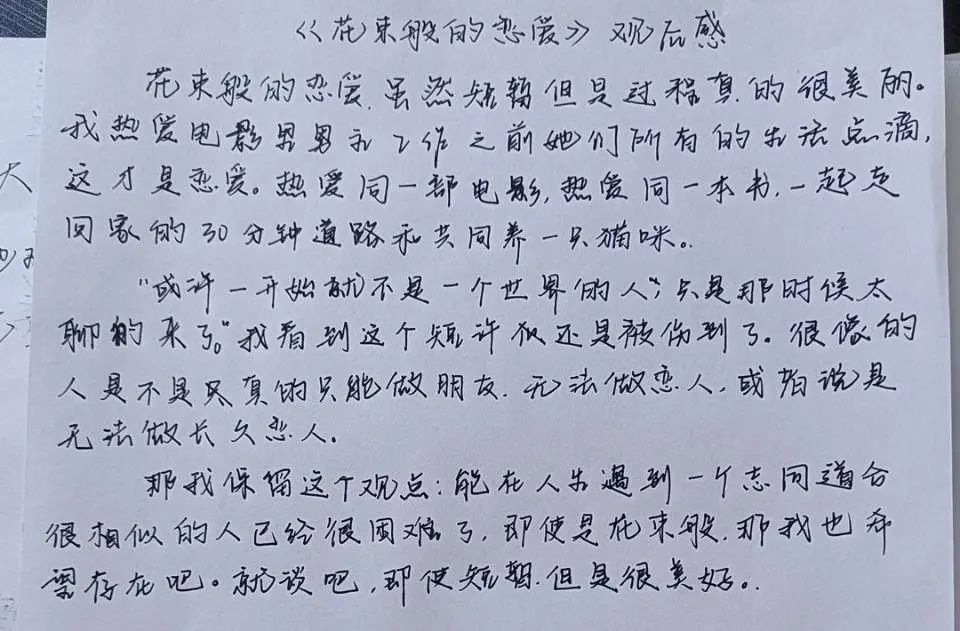 《花束般的恋爱》观后感
花束般的恋爱,虽然短暂但是过程真的很美丽。
我热爱电影里男主工作之前她们所有的生活点滴,
这才是恋爱。热爱同一部电影,热爱同一本书,一起走
回家的30分钟道路和共同养一只猫咪。
"或许一开始就不是一个世界的人",只是那时候太
聊的来了。"我看到这个短评 还是被伤到了。很像的
人是不是 真的只能做朋友,无法做恋人,或者说是
无法做长久恋人。
那我保留这个观点:能在人生遇到一个志同道合
很相似的人已经很困难了,即使是花束般,那我也希
望存在吧。就谈吧,即使短暂,但是很美好。
大